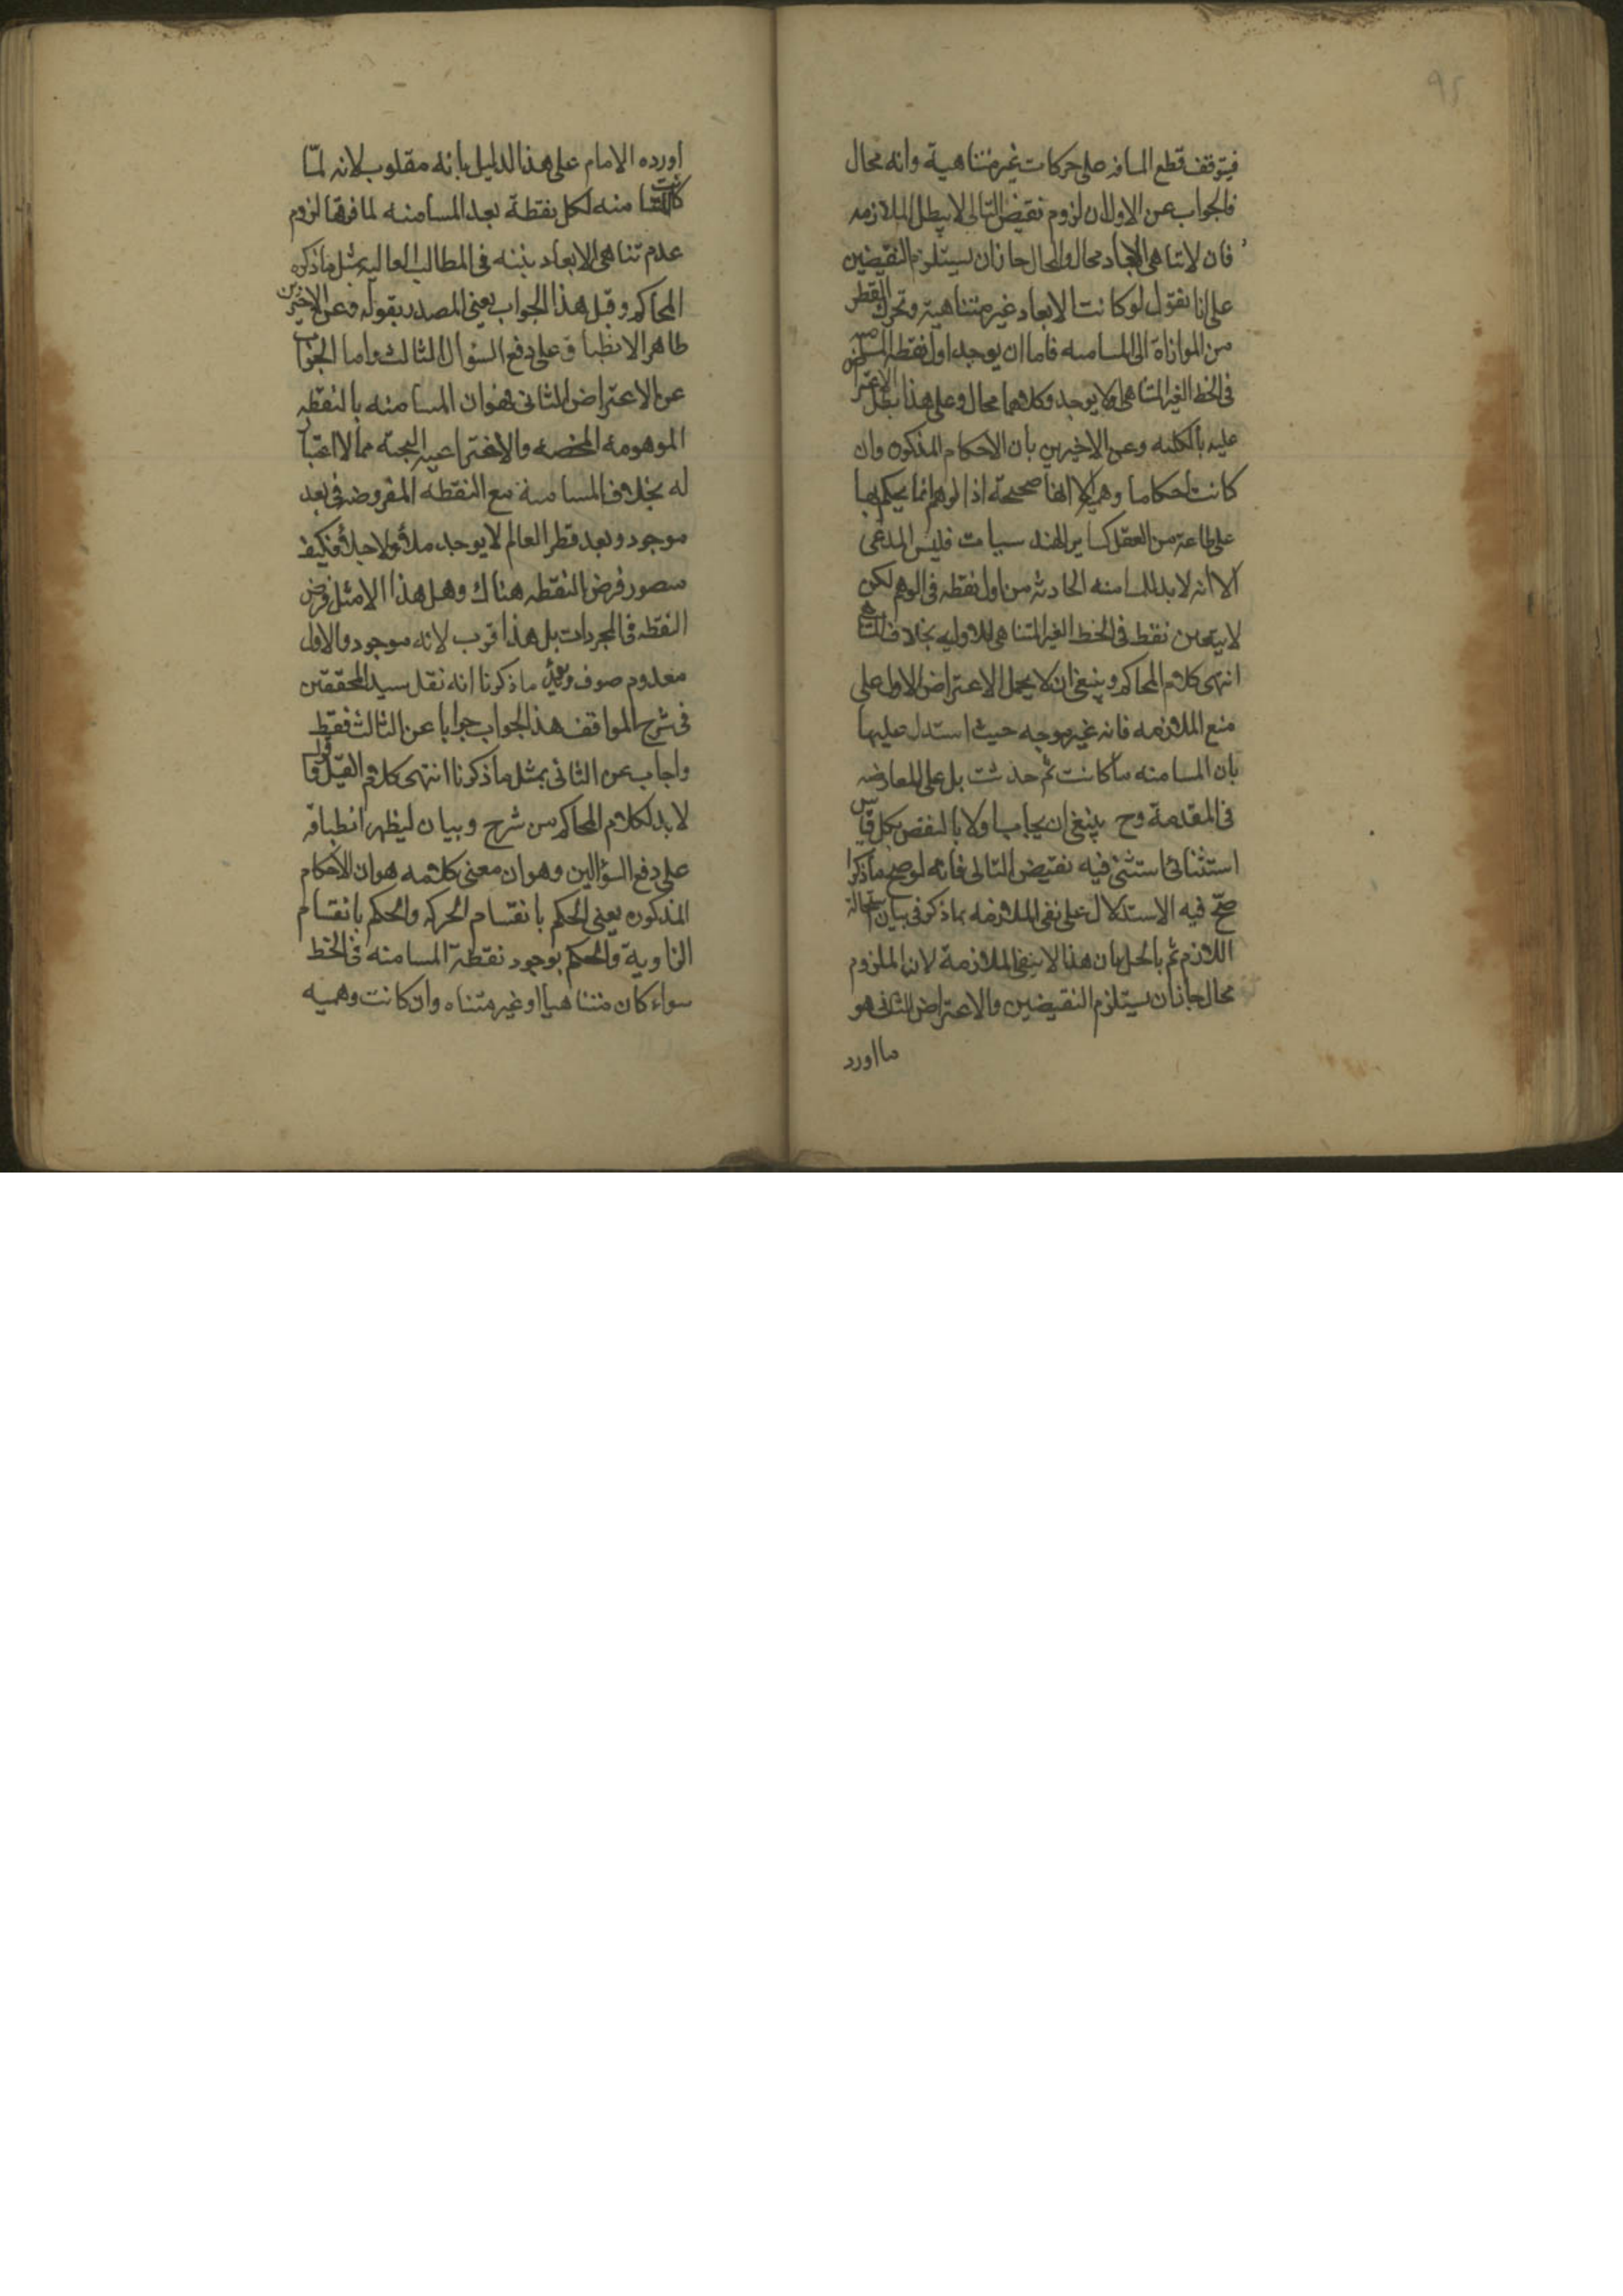 فيتوقف قطع المسافه على حركات غير متناهية وانه محال
فالجواب عن الاول ان لزوم نقيض التالى لا يبطل الملازمه
فان لا تناهى الابعاد محال والمحال جاز ان يستلزم النقيضين
على انا نقول لو كانت الابعاد غير متناهية وتحرك القطر
من الموازاة الى المسامته فاما ان يوجد اول نقطه المسامته
فى الخط الغير المتناهى او لا يوجد وكلاهما محال وعلى هذا بطل الاعتراض
عليه بالكليه وعن الاخيرين بان الاحكام المذكوره وان
كانت احكاما وهمية الا انها صحيحة اذ الوهم انما يحكم بها
على طاعة من العقل كساير الهندسيات فليس المدعى
الا انه لا بد للمسامته الحادثه من اول نقطه فى الوهم لكن
لا يتعين نقطه فى الخط الغير المتناهى للاوليه بخلاف المتناهى
انتهى كلام المحاكم وينبغى ان لا يحمل الاعتراض الاول على
منع الملازمه فانه غير موجه حيث استدل عليها
بان المسامته ما كانت ثم حدثت بل على المعارضه
فى المقدمة وح ينبغى ان يجاب اولا بالنقض بكل قياس
استثنائى استثنى فيه نقيض التالى فانه لو صح ما ذكر
صح فيه الاستدلال على نفى الملازمه بما ذكر فى بيان استحالة
اللازم ثم بالحل بان هذا لا ينفى الملازمة لان الملزوم
محال جاز ان يستلزم النقيضين والاعتراض الثانى هو
ما اورد
اورده الامام على هذا الدليل بانه مقلوب لانه لما
كانت المسامته لكل نقطة بعد المسامته لما فوقها لزوم
عدم تناهى الابعاد بينه فى المطالب العاليه بمثل ما ذكره
المحاكم وقيل هذا الجواب يعنى المصدر بقوله وعن الاخيرين
ظاهر الانطباق على دفع السؤال الثالث واما الجواب
عن الاعتراض الثانى فهو ان المسامته بالنقطه
الموهومه المحضه والاختراعيه البحته مما لا اعتبار
له بخلاف المسامتة مع النقطه المفروضه فى بعد
موجود وبعد قطر العالم لا يوجد ملأ ولا خلأ فكيف
يتصور فرض النقطه هناك وهل هذا الا مثل فرض
النقطه فى المجردات بل هذا اقرب لانه موجود والاول
معدوم صرف ويؤيد ما ذكرنا انه نقل سيد المحققين
فى شرح المواقف هذا الجواب جوابا عن الثالث فقط
واجاب عن الثانى بمثل ما ذكرنا انتهى كلام القيل واقول
لا بد لكلام المحاكم من شرح وبيان ليظهر انطباقه
على دفع السؤالين وهو ان معنى كلامه هو ان الاحكام
المذكوره يعنى الحكم بانقسام الحركه والحكم بانقسام
الزاوية والحكم بوجود نقطة المسامته فى الخط
سواء كان متناهيا او غير متناه وان كانت وهميه